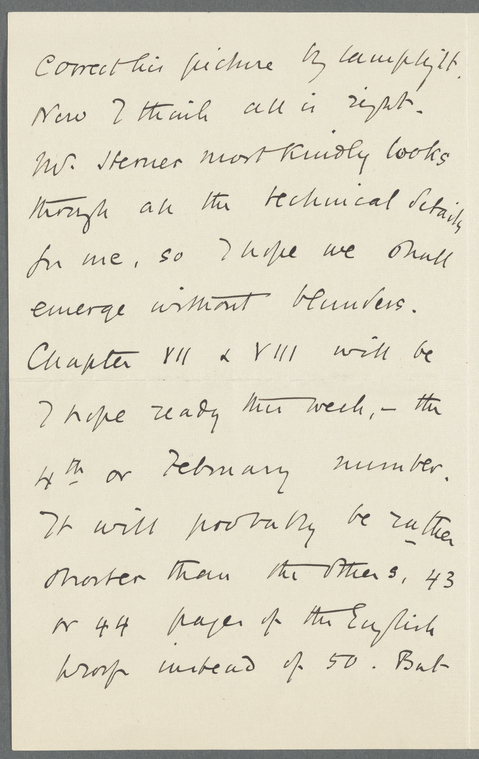 correct his picture by lamplight.
Now I think all is right.
Mr. Sterner most kindly looks
through all the technical details
for me, so I hope we shall
emerge without blunders.
Chapter VII & VIII will be
I hope ready this week, – the
4th or February number.
It will probably be rather
shorter than the others, 43
or 44 pages of the English
proof instead of 50. But